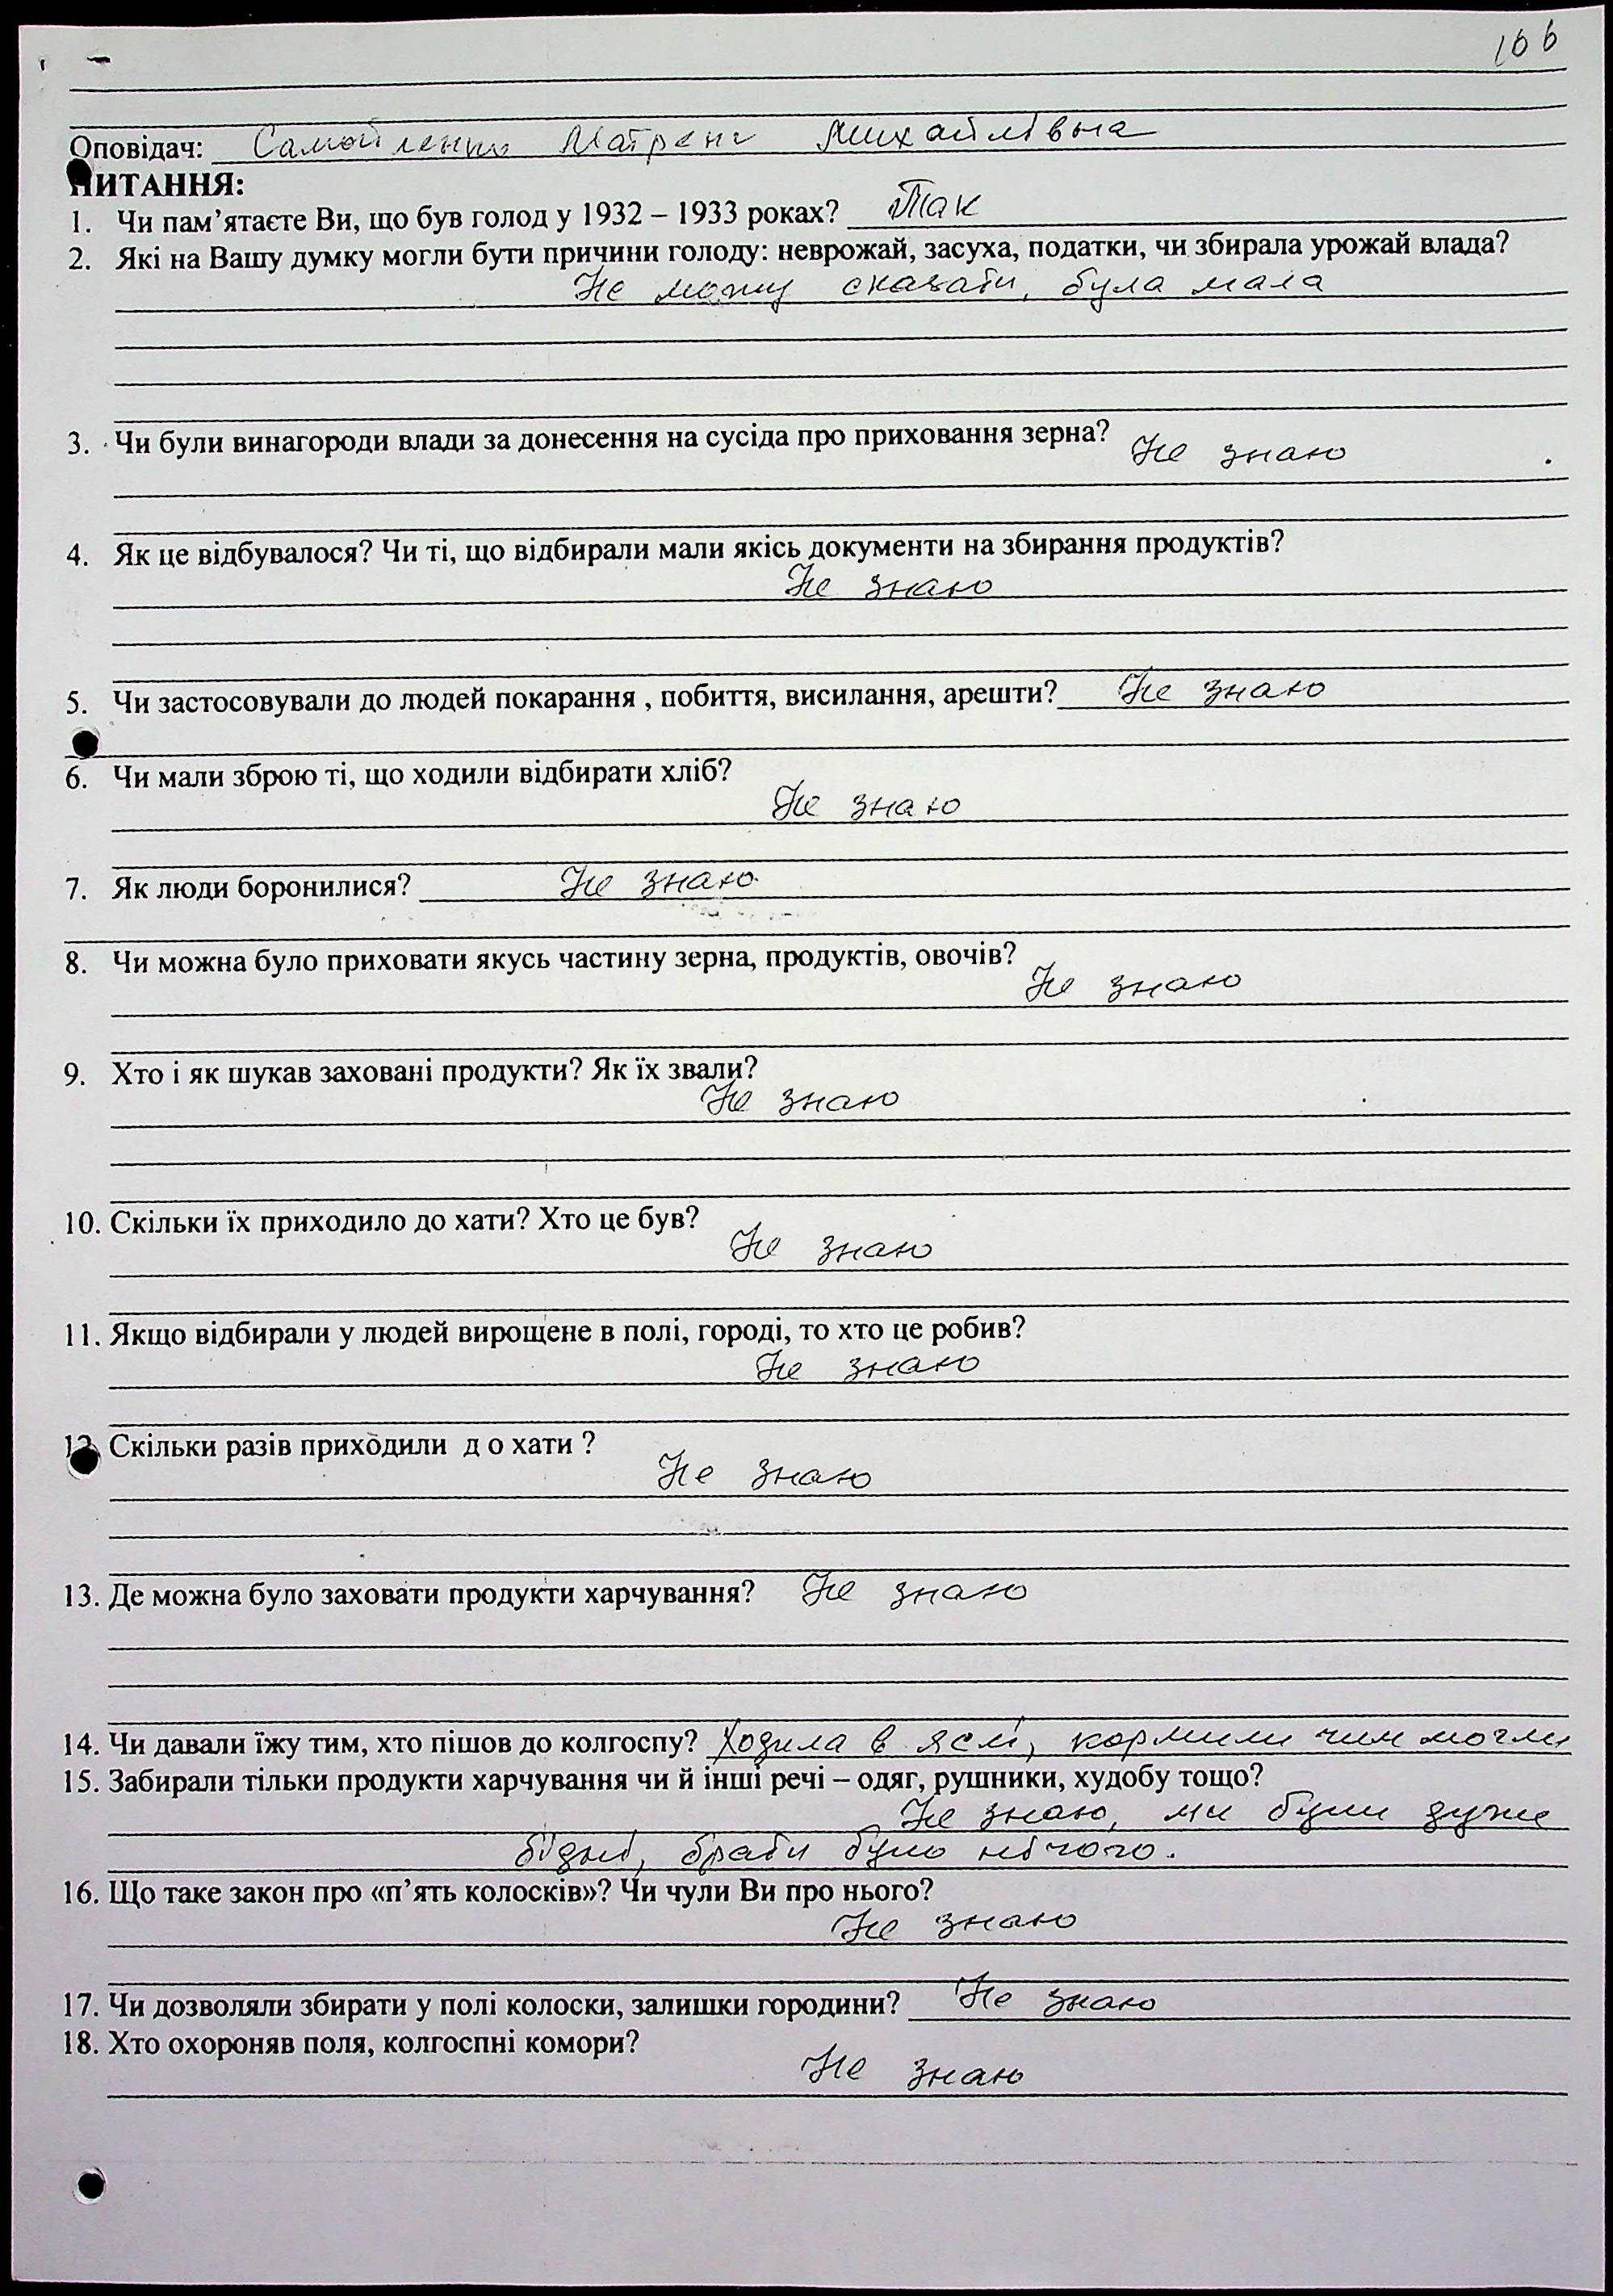 166
Оповідач: Самойленко Матрена Михайлівна
ПИТАННЯ:
1. Чи пам’ятаєте Ви, що був голод у 1932 – 1933 роках? Так
2. Які на Вашу думку могли бути причини голоду: неврожай, засуха, податки, чи збирала урожай влада?
Не можу сказати, була мала
3. Чи були винагороди влади за донесення на сусіда про приховання зерна? Не знаю
4. Як це відбувалося? Чи ті, що відбирали мали якісь документи на збирання продуктів?
Не знаю
5. Чи застосовували до людей покарання , побиття, висилання, арешти? Не знаю
6. Чи мали зброю ті, що ходили відбирати хліб?
Не знаю
7. Як люди боронилися? Не знаю
8. Чи можна було приховати якусь частину зерна, продуктів, овочів?
Не знаю
9. Хто і як шукав заховані продукти? Як їх звали?
Не знаю
10. Скільки їх приходило до хати? Хто це був?
Не знаю
11. Якщо відбирали у людей вирощене в полі, городі, то хто це робив?
Не знаю
12. Скільки разів приходили д о хати ?
Не знаю
13. Де можна було заховати продукти харчування? Не знаю
14. Чи давали їжу тим, хто пішов до колгоспу? Ходила в яслі, кормили чим могли
15. Забирали тільки продукти харчування чи й інші речі – одяг, рушники, худобу тощо?
Не знаю, ми були дуже
бідні, брати було нічого.
16. Що таке закон про «п’ять колосків»? Чи чули Ви про нього?
Не знаю
17. Чи дозволяли збирати у полі колоски, залишки городини? Не знаю
18. Хто охороняв поля, колгоспні комори?
Не знаю